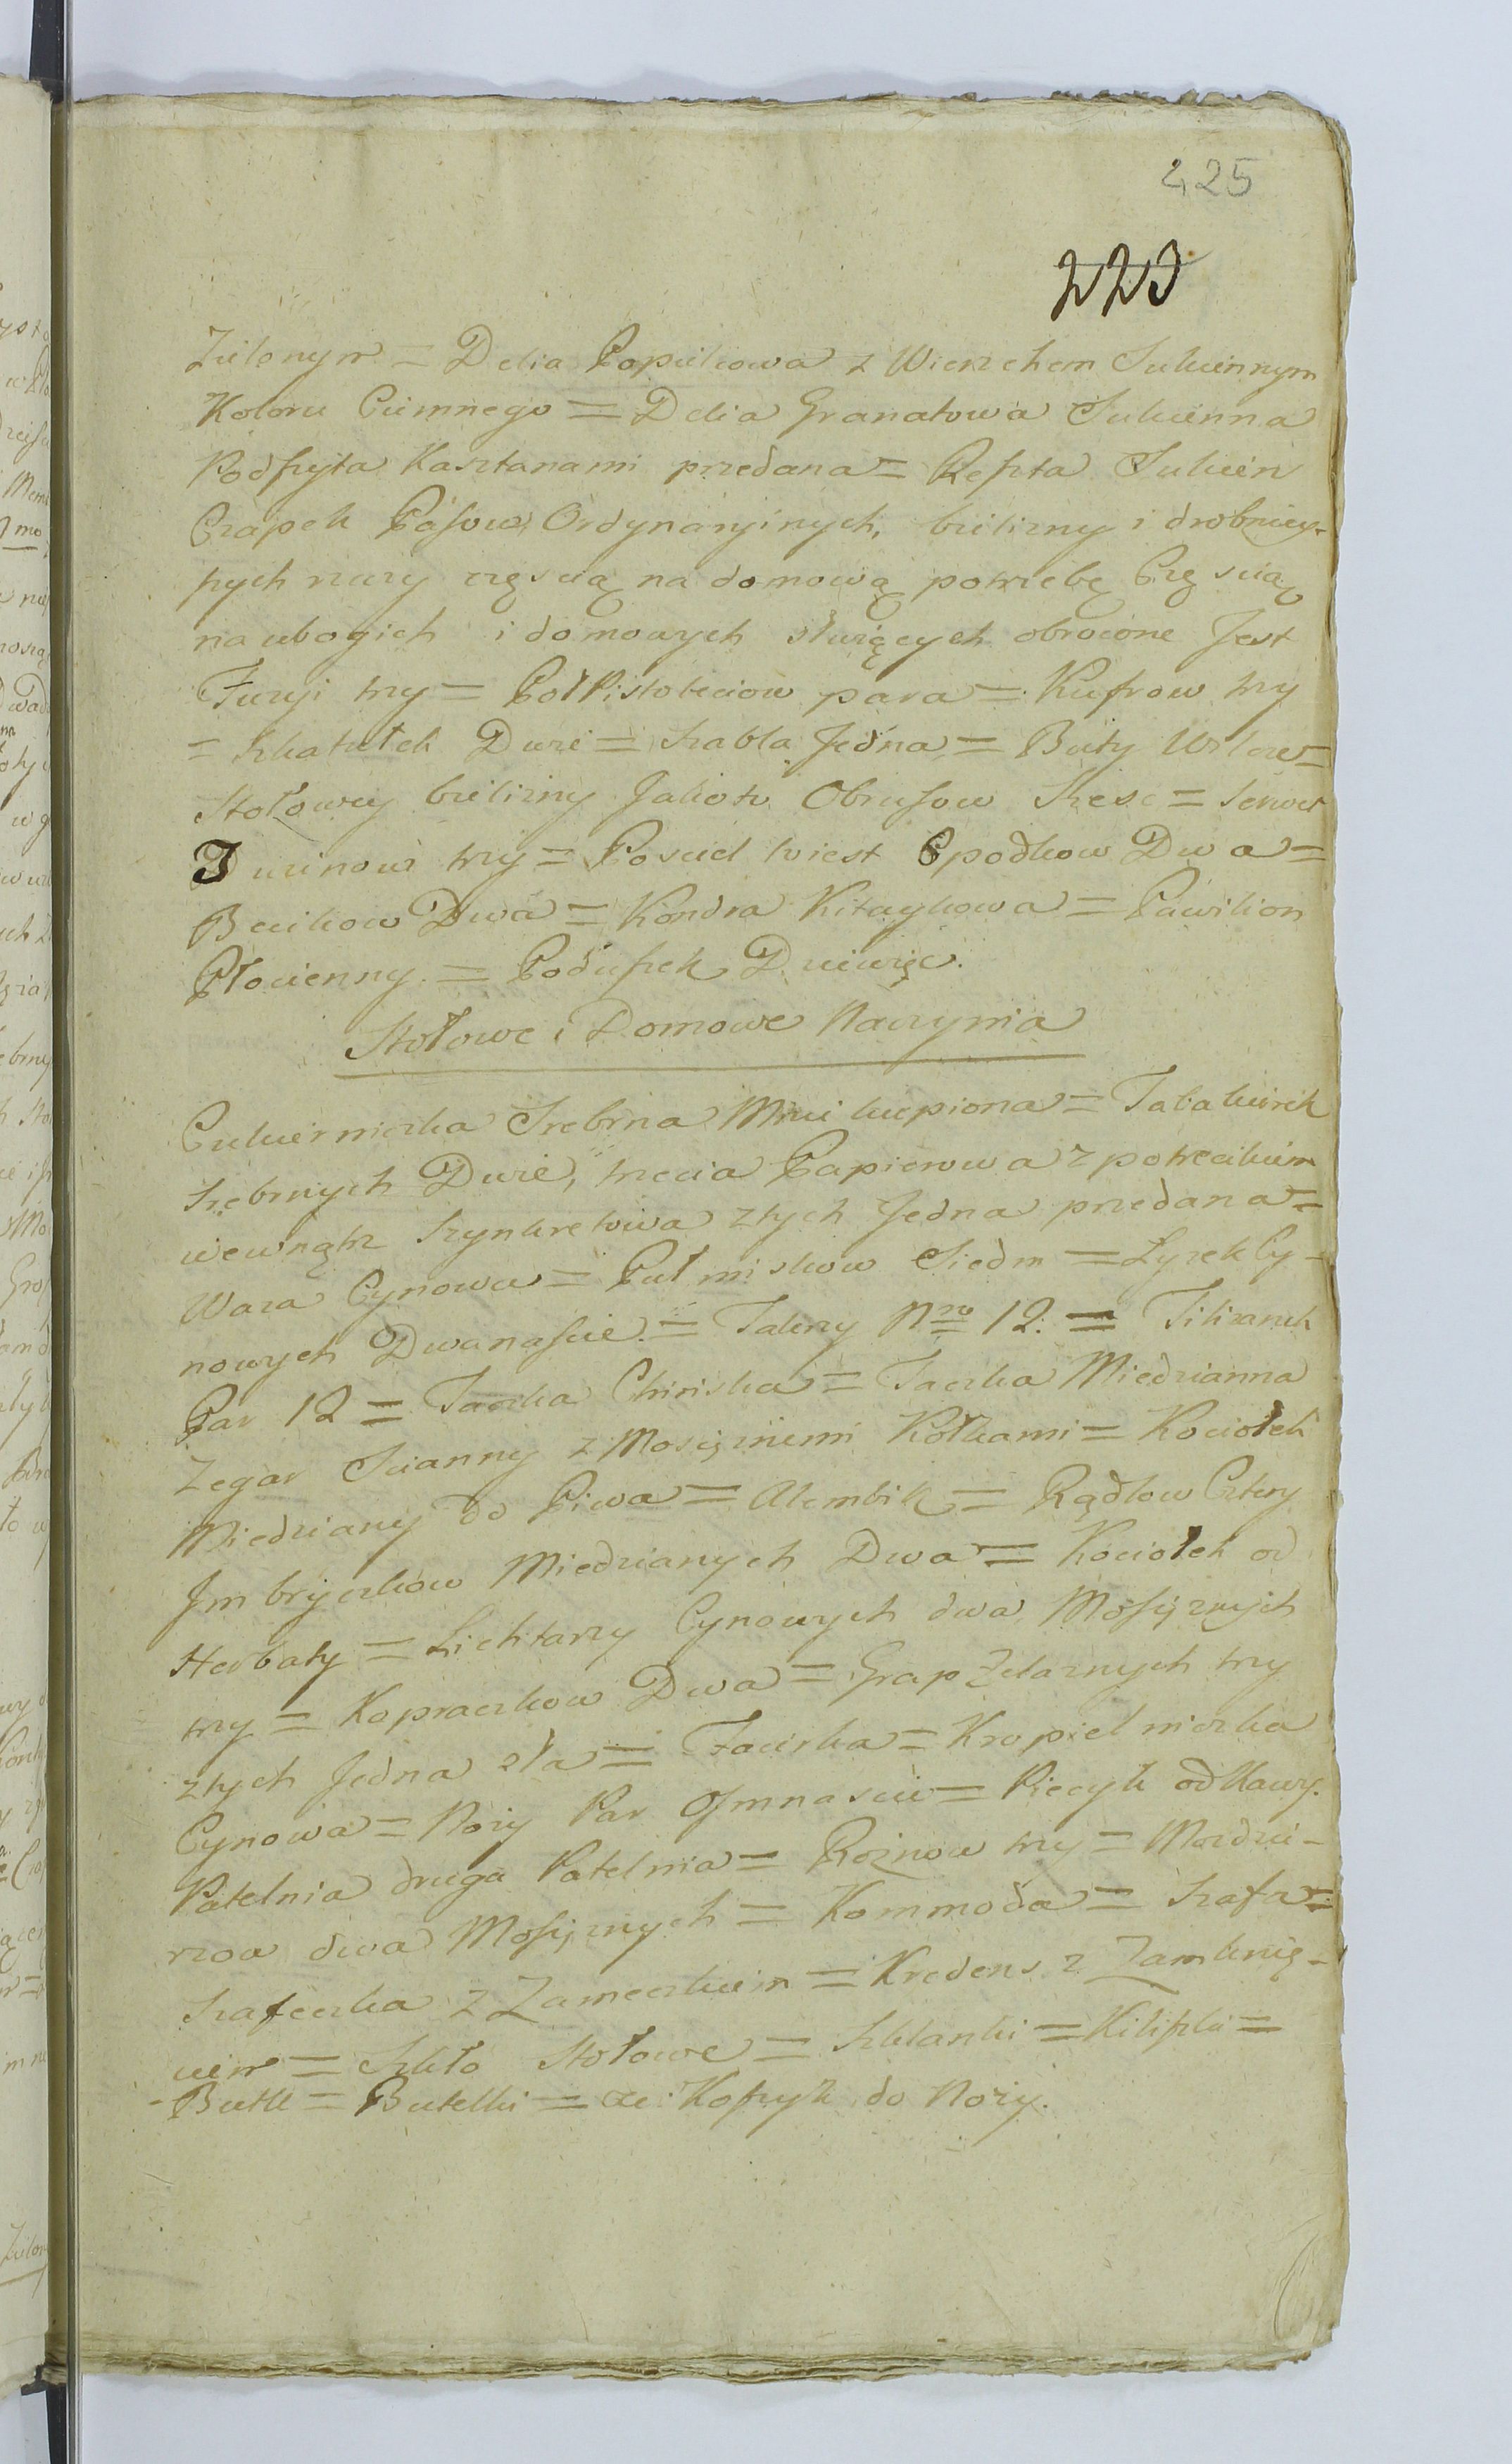 425
223
Zielonym = Delia Popielicowa z Wierzchem Sukiennym
Koloru Ciemnego = Delia Granatowa Sukienna
Podszyta Kasztanami przedana = Reszta Sukień
Czapek Pasow Ordynaryinych, bielizny i drobniey-
szych rzeczy częscią na domową potrzebę Częscią
na ubogich i domowych służących obrocone Jest
Fuzyi trzy = Połpistoleciow para = Kufrow trzy
= Szkatułek Dwie = Szabla Jedna = Buty
Stołowey bielizny Jakoto Obrusow Szesc = Serwet
Tuzinow trzy = Posciel to iest Spodkow Dwa =
Becikow Dwa = Kondra Kitaykowa = Pawilion
Płocienny = Poduszek Dziewięc.
Stołowe i Domowe Naczynia
Cukierniczka Srebrna Mniey kupiona = Tabakierek
Srebrnych Dwie, trzecia Papierowa z potrecikiem
wewnątrz Szynkretowa z tych Jedna przedana =
Waza Cynowa = Pułmiskow Siedm = Łyżek Cy-
nowych Dwanascie = Talerzy Nro 12. = Filiżanek
Par 12 = Taczka Chinska = Taczka Miedzianna
Zegar Scianny z Mosiężnemi Kołkami = Kociołek
Miedziany do Piwa = Alembik = Rądlow Cztery
Jmbryczkow Miedzianych Dwa = Kociołek od
Herbaty = Lichtarzy Cynowych dwa, Mosiężnych
trzy = Kopraczkow Dwa = Grap Żelaznych trzy
z tych Jedna zła = Faierka = Kropielniczka
Cynowa = Noży Par Osmnascie = Piecyk od Kawy.
Patelnia druga Patelnia = Rożnow trzy = Mozdzie-
rzow dwa Mosiężnych = Kommoda = Szafa =
Szafeczka z Zameczkiem = Kredens z Zamknię-
ciem = Szkło Stołowe = Szklanki = Kiliszki =
- Butle = Butelki = &c: Koszyk do Noży.